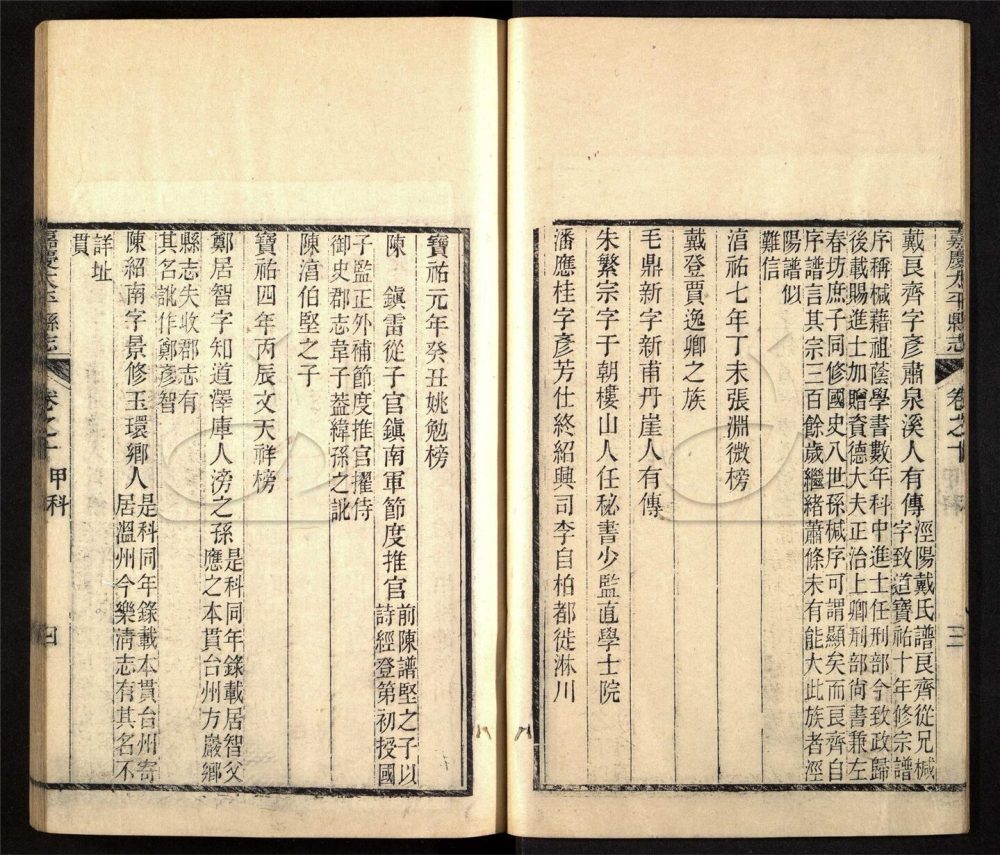 嘉慶太平縣志 卷之十 甲科 三
戴良齊字彥肅泉溪人有傳涇陽戴氏譜良齊從兄椷
字致道寶祐十年修宗譜
序稱椷藉祖蔭學書數年科中進士任刑部令致政歸
後載賜進士加贈資德大夫正治上卿刑部尚書兼左
春坊庶子同修國史八世孫椷序可謂顯矣而良齊自
序譜言其宗三百餘歲繼緒蕭條未有能大此族者涇
陽譜似
難信
淯祐七年丁未張淵微榜
戴登賈逸卿之族
毛鼎新字新甫丹崖人有傳
朱繁宗字于朝樓山人任秘書少監直學士院
潘應桂字彥芳仕終紹興司李自柏都徙淋川
寶祐元年癸丑姚勉榜
陳 鎭雷從子官鎭南軍節度推官前陳譜堅之子以
詩經登第初授國
子監正外補節度推官擢侍
御史郡志韋子葢緯孫之訛
陳淯伯堅之子
寶祐四年丙辰文天祥榜
鄭居智字知道澤庫人滂之孫是科同年錄載居智父
應之本貫台州方巖鄉
縣志失收郡志有
其名訛作鄭彥智
陳紹南字景修玉環鄉人是科同年錄載本貫台州寄
居溫州今樂淸志有其名不
詳址
貫
嘉慶太平縣志 卷之十 甲科 四